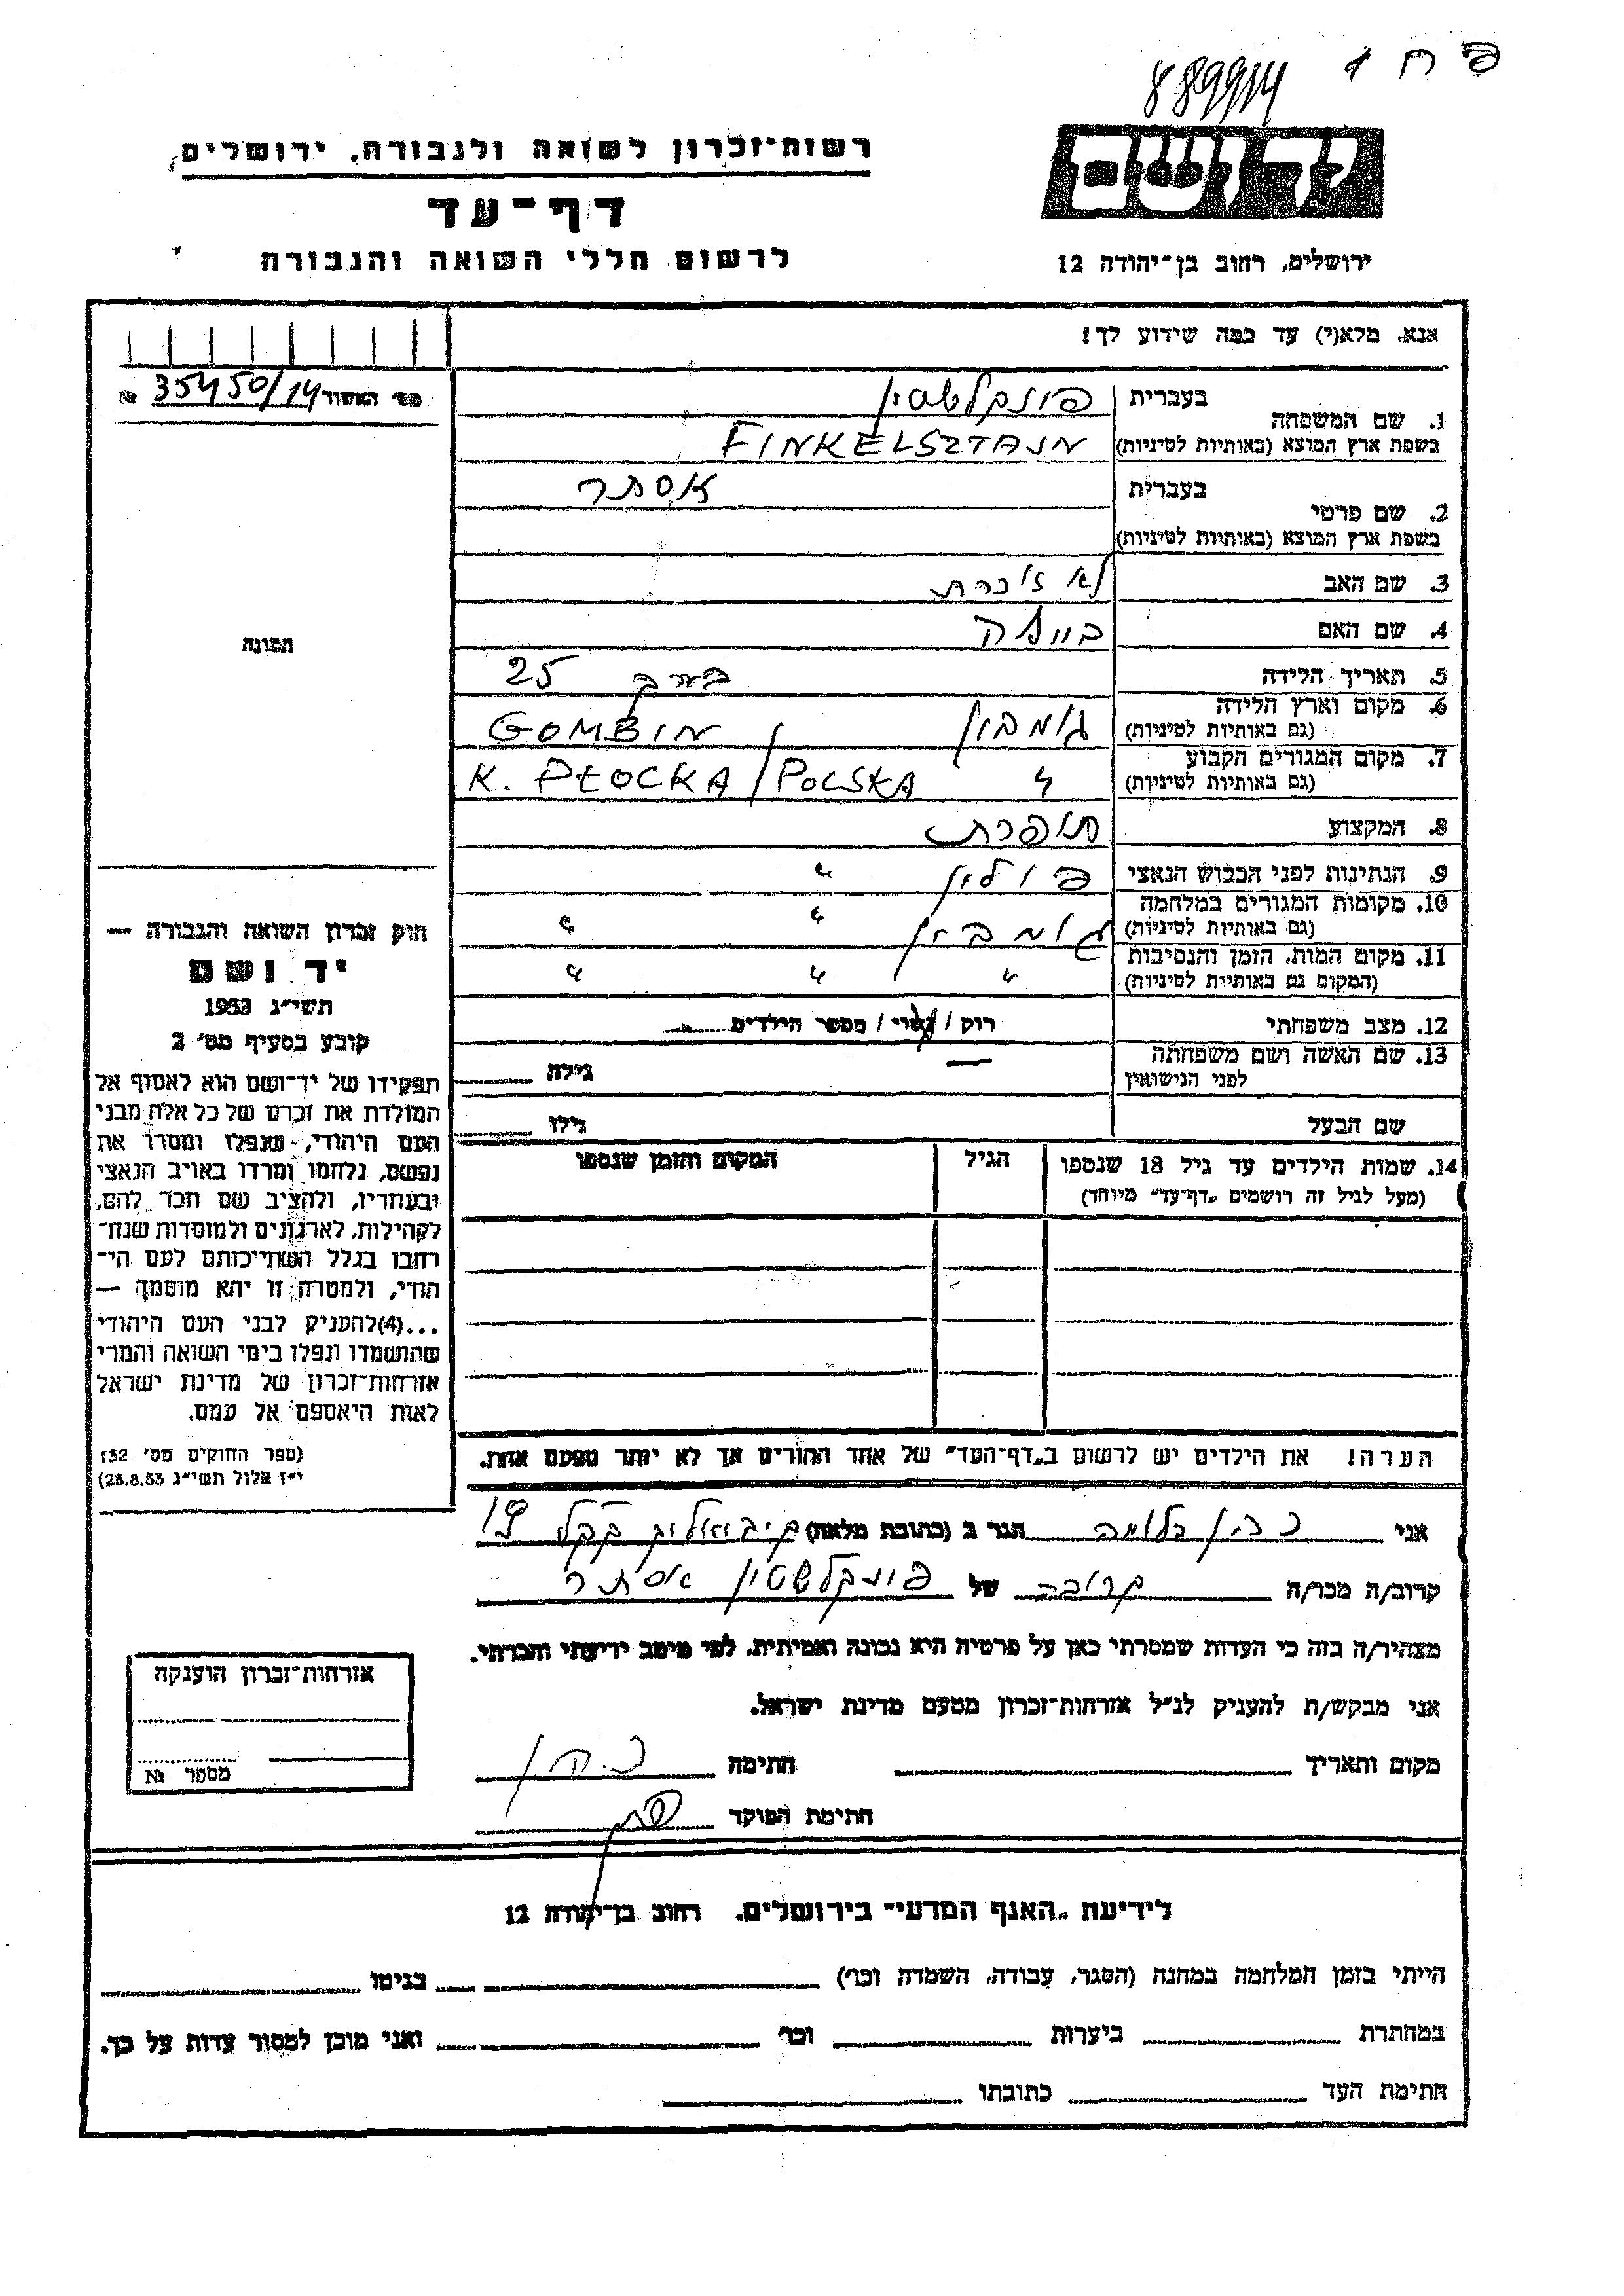 פ ח 1
889914
יד ושם
ירושלים, רחוב בן־יהודה 12
רשות־זכרון לשואה ולגבורה, ירושלים
דף־עד
לרשום חללי השואה והגבורה
אנא, מלא(י) עד כמה שידוע לך!
מס׳ האשור 35450/14 №
1. שם המשפחה בעברית פינקלשטיין
בשפת ארץ המוצא (באותיות לטיניות) FINKELSZTAJN
2. שם פרטי בעברית אסתר
בשפת ארץ המוצא (באותיות לטיניות)
3. שם האב לא זוכרת
4. שם האם ביילה
5. תאריך הלידה בערך 25
6. מקום וארץ הלידה (גם באותיות לטיניות) גומבין GOMBIN
7. מקום המגורים הקבוע (גם באותיות לטיניות) " K. PŁOCKA / POLSKA
8. המקצוע תופרת
9. הנתינות לפני הכבוש הנאצי פולין "
10. מקומות המגורים במלחמה (גם באותיות לטיניות) גומבין " "
11. מקום המות, הזמן והנסיבות (המקום גם באותיות לטיניות) " " "
12. מצב משפחתי רוק / נשוי / מספר הילדים
13. שם האשה ושם משפחתה לפני הנישואין — גילה
שם הבעל גילו
14. שמות הילדים עד גיל 18 שנספו הגיל המקום והזמן שנספו
(מעל לגיל זה רושמים „דף־עד” מיוחד)
הערה! את הילדים יש לרשום ב„דף־העד” של אחד ההורים אך לא יותר מפעם אחת.
תמונה
חוק זכרון השואה והגבורה —
יד ושם
תשי״ג 1953
קובע בסעיף מס׳ 2
תפקידו של יד־ושם הוא לאסוף אל
המולדת את זכרם של כל אלה מבני
העם היהודי, שנפלו ומסרו את
נפשם, נלחמו ומרדו באויב הנאצי
ובעוזריו, ולהציב שם וזכר להם,
לקהילות, לארגונים ולמוסדות שנח־
רבו בגלל השתייכותם לעם הי־
הודי, ולמטרה זו יהא מוסמך —
...(4)להעניק לבני העם היהודי
שהושמדו ונפלו בימי השואה והמרי
אזרחות־זכרון של מדינת ישראל
לאות היאספם אל עמם.
(ספר החוקים מס׳ 132
י״ז אלול תשי״ג 28.8.53)
אני כהן הגר ב (כתובת מלאה)
קרוב/ה מכר/ה קרובה של פינקלשטיין אסתר
מצהיר/ה בזה כי העדות שמסרתי כאן על פרטיה היא נכונה ואמיתית, לפי מיטב ידיעתי והכרתי.
אני מבקש/ת להעניק לנ״ל אזרחות־זכרון מטעם מדינת ישראל.
מקום ותאריך חתימה כהן
חתימת הפוקד
אזרחות־זכרון הוענקה
מספר №
לידיעת „האגף המדעי” בירושלים, רחוב בן־יהודה 12
הייתי בזמן המלחמה במחנה (הסגר, עבודה, השמדה וכו׳) בגיטו
במחתרת ביערות וכו׳ ואני מוכן למסור עדות על כך.
חתימת העד כתובתו